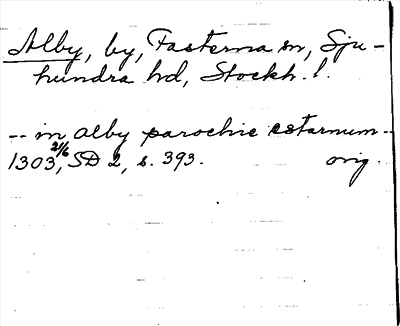 Alby, by, Fasterna sn, Sju-
hundra hd, Stockh. l.
-- in alby parochie estarnum --
1303 2/6, SD 2, s. 393. orig.